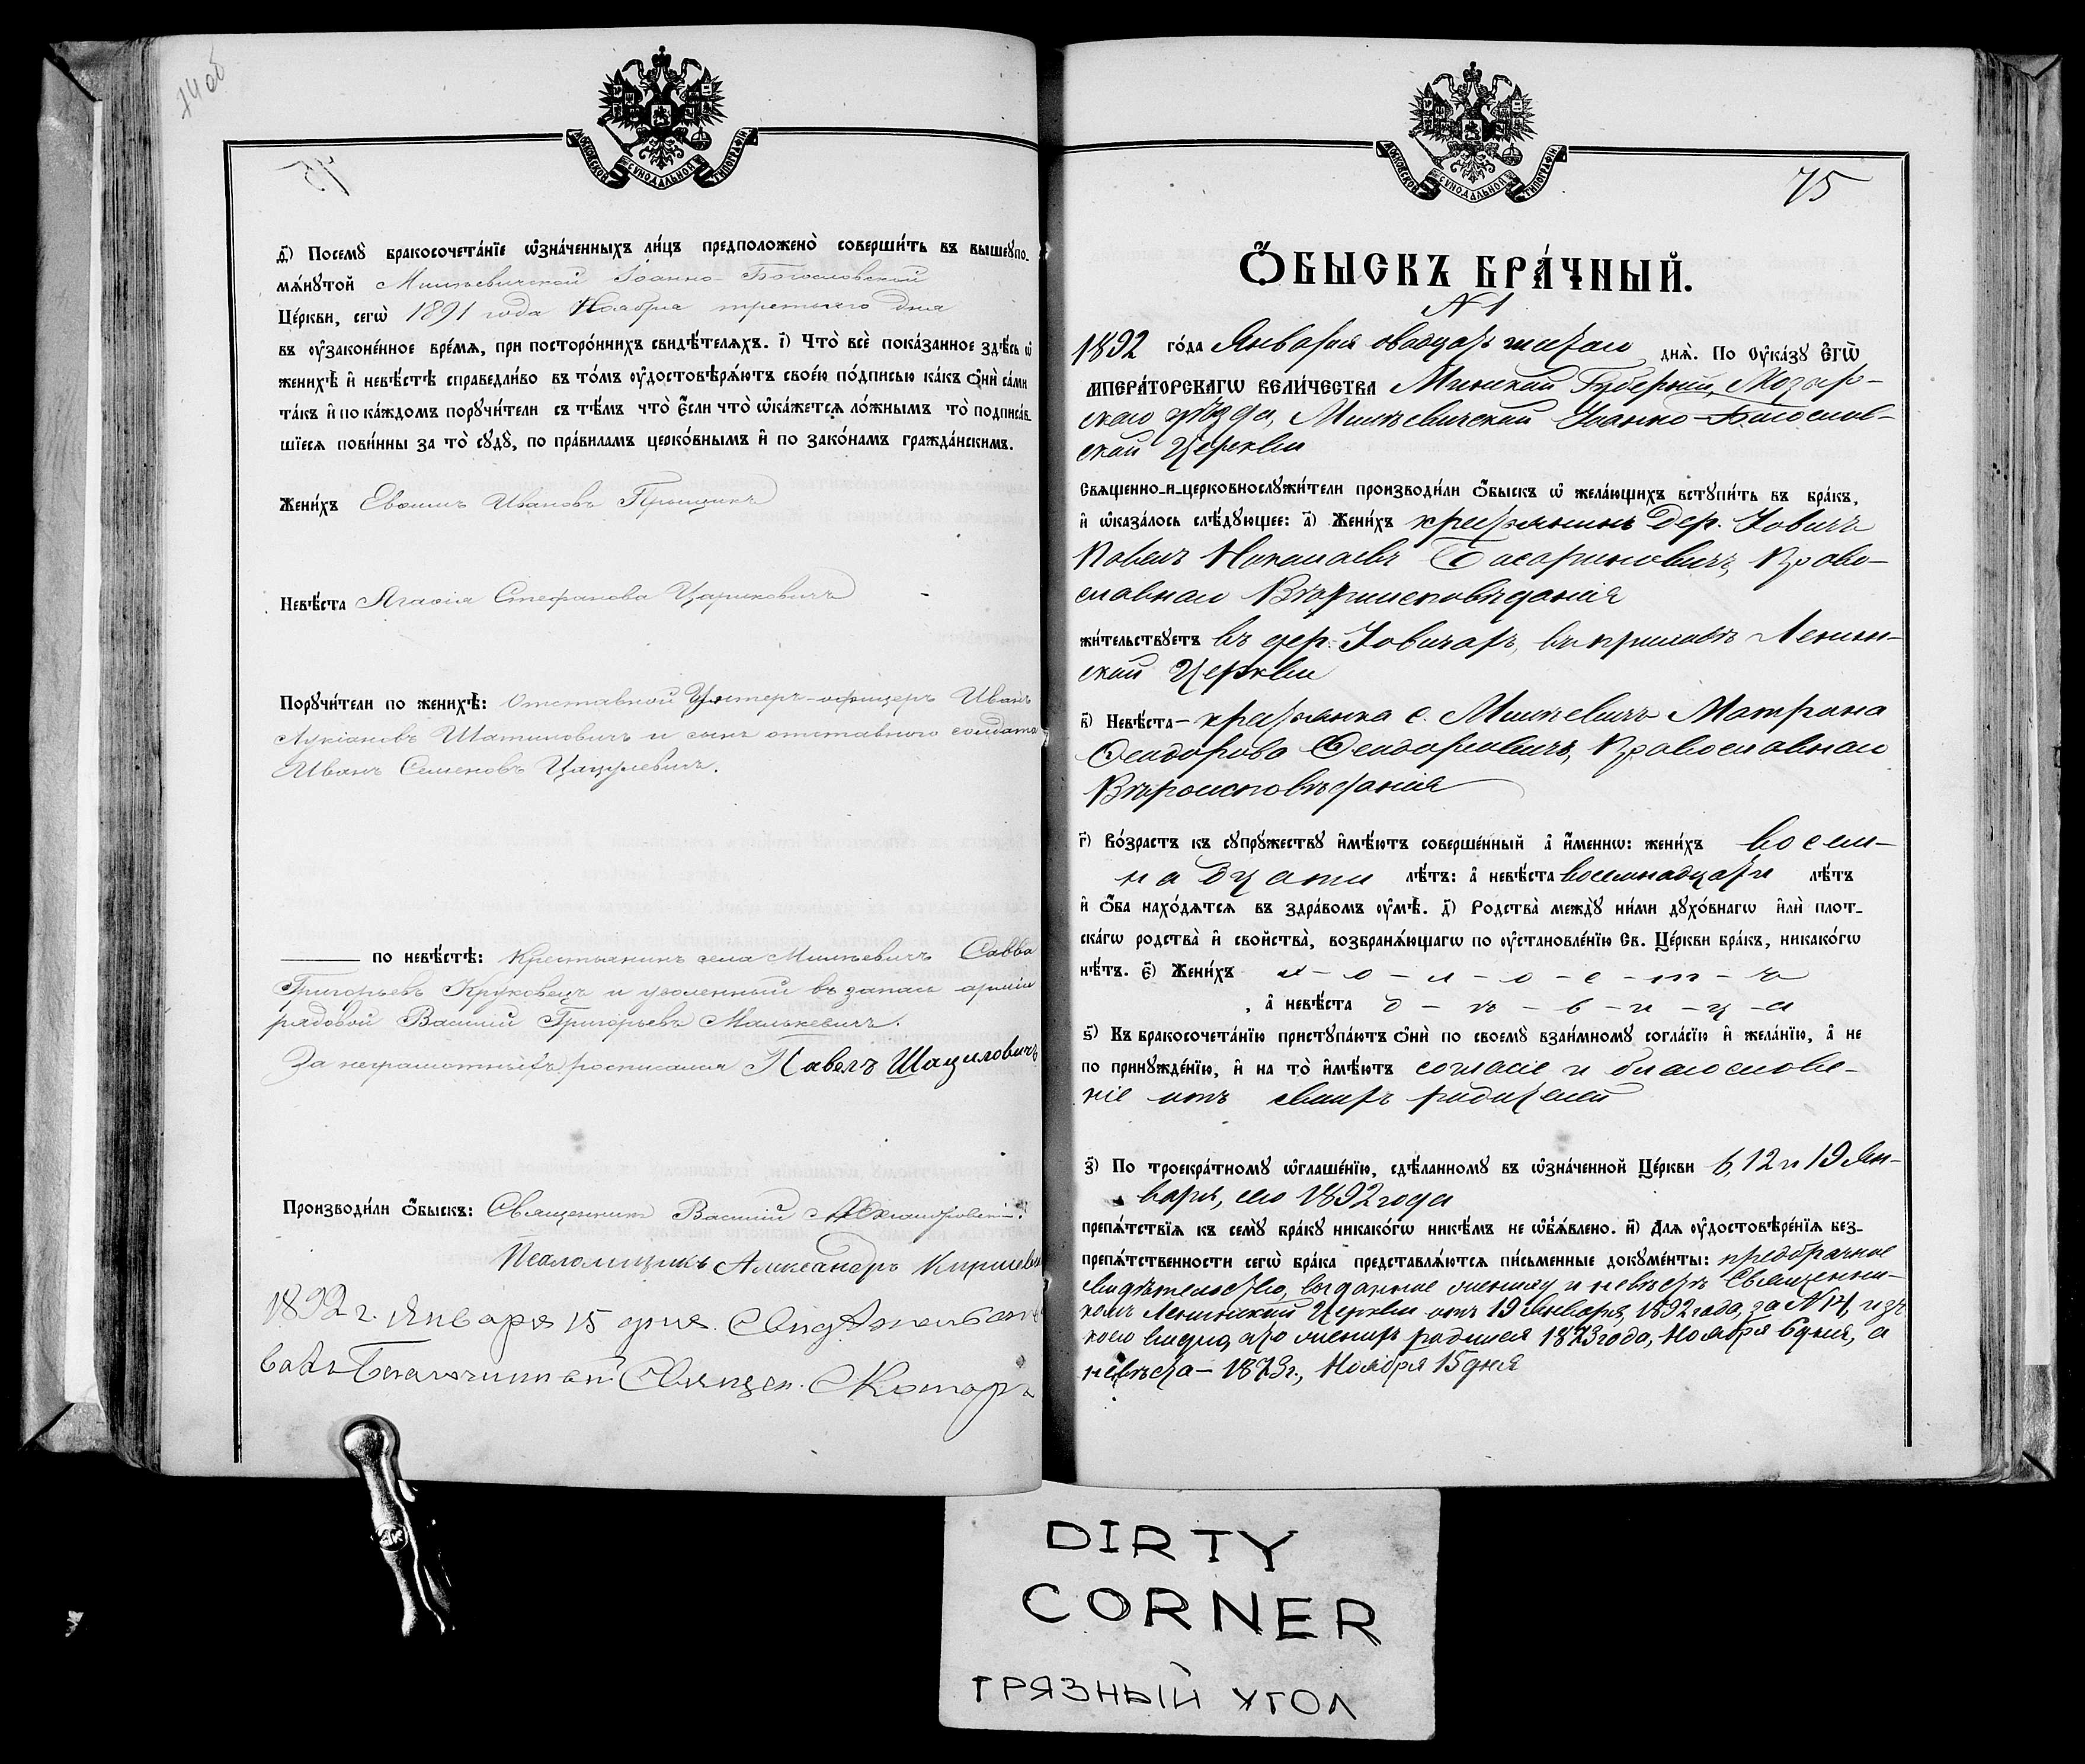 74 об
МОСКОВСКОЙ СѴНОДАЛЬНОЙ ТИПОГРАФІИ
д҃) Посемꙋ̀ бракосочета́нїе ѡ҆зна́ченныхъ ли́цъ предположено̀ соверши́ть въ вышеꙋпо-
мѧ́нꙋтой Милѣевичской Іоанно-Богословской
Це́ркви, сегѡ̀ 1891 года Ноября третьяго дня
въ ᲂу҆зако́ненное вре́мѧ, при посторо́ннихъ свидѣ́телѧхъ. і҃) Что̀ всѐ пока́занное здѣ́сь ѡ҆
женихѣ̀ и҆ невѣ́стѣ справедли́во въ то́мъ ᲂу҆достовѣрѧ́ютъ свое́ю по́дписью ка́къ ѻ҆нѝ са́ми
та́къ и҆ по ка́ждомъ порꙋчи́тели съ тѣ́мъ что̀ є҆́сли что̀ ѡ҆ка́жетсѧ ло́жнымъ то̀ подписа́в-
шїесѧ пови́нны за то̀ сꙋдꙋ̀, по пра́виламъ церко́внымъ и҆ по зако́намъ гражда́нскимъ.
Жени́хъ Евфимъ Ивановъ Прыщикъ
Невѣ́ста Агафія Стефанова Цариковичъ
Порꙋчи́тели по женихѣ̀: Отставной Унтеръ-офицеръ Иванъ
Лукіановъ Шатиловичъ и сынъ отставного солдата
Иванъ Семеновъ Цацулевичъ.
по невѣ́стѣ: Крестьянинъ села Милѣевичъ Савва
Григорьевъ Круковецъ и уволенный въ запасъ арміи
рядовой Василій Григорьевъ Малькевичъ.
За неграмотныхъ росписался Павелъ Шациловичъ
Производи́ли ѻ҆́быскъ: Священникъ Василій Александровскій
Псаломщикъ Александръ
1892 г. Января 15 дня. Свидѣтельство-
валъ Благочинный Священ. Комаръ
МОСКОВСКОЙ СѴНОДАЛЬНОЙ ТИПОГРАФІИ
75
Ѻ҆́БЫСКЪ БРА́ЧНЫЙ.
N 1
1892 го́да Января двадцать шестого днѧ̀. По ᲂу҆ка́зꙋ є҆гѡ̀
мпера́торскагѡ вели́чества Минской Губерніи, Мозыр-
скаго уѣзда, Милѣевичской Іоанно-Богослов-
ской Церкви
Свѧщенно-и-церковнослꙋжи́тели производи́ли ѻ҆́быскъ ѡ҆ жела́ющихъ встꙋпи́ть въ бра́къ,
и҆ ѡ҆каза́лось слѣ́дꙋющее: а҃) Жени́хъ крестьянинъ дер. Іовичъ
Павелъ Николаевъ Басариновичъ, Право-
славнаго Вѣроисповѣданія
жи́тельствꙋетъ въ дер. Іовичахъ, въ приходѣ Ленин-
ской Церкви
в҃) Невѣ́ста - крестьянка с. Милѣевичъ Матрона
Ѳеодорова Ѳеодоровичъ, Православнаго
Вѣроисповѣданія
г҃) Во́зрастъ къ сꙋпрꙋ́жествꙋ и҆мѣ́ютъ соверше́нный а҆ и҆́меннѡ: жени́хъ восем-
надцати лѣ́тъ: а҆ невѣ́ста восемнадцати лѣ́тъ
и҆ ѻ҆́ба нахо́дѧтсѧ въ здра́вомъ ᲂу҆мѣ̀. д҃) Родства̀ междꙋ̀ ни́ми дꙋхо́внагѡ и҆лѝ плот-
ска́гѡ родства̀ и҆ свойства̀, возбранѧ́ющагѡ по ᲂу҆становле́нїю Св. Це́ркви бра́къ, никако́гѡ
нѣ́тъ. є҃) Жени́хъ х-о-л-о-с-т-ъ
, а҆ невѣ́ста д-ѣ-в-и-ц-а
ѕ҃) Къ бракосочета́нїю пристꙋпа́ютъ ѻ҆нѝ по своемꙋ̀ взаи́мномꙋ согла́сїю и҆ жела́нїю, а҆ не
по принꙋжде́нїю, и҆ на то̀ и҆мѣ́ютъ согласіе и благослове-
ніе отъ своихъ родителей
з҃) По троекра́тномꙋ ѡ҆глаше́нїю, сдѣ́ланномꙋ въ ѡ҆зна́ченной Це́ркви 6, 12 и 19 Ян-
варя, сего 1892 года
препѧ́тствїѧ къ семꙋ̀ бра́кꙋ никако́гѡ никѣ́мъ не ѡ҆б̾ѧ́влено. и҃) Длѧ ᲂу҆достовѣре́нїѧ без-
препѧ́тственности сегѡ̀ бра́ка представлѧ́ютсѧ пи́сьменные докꙋме́нты: предбрачное
свидѣтельство, выданное жениху и невѣстѣ Священни-
комъ Ленинской Церкви отъ 19 Января, 1892 года, за N 14, изъ
коего видно, что женихъ родился 1873 года, Ноября 6 дня, а
невѣста - 1873 г., Ноября 15 дня
DIRTY
CORNER
ГРЯЗНЫЙ УГОЛ